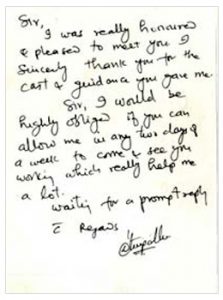 Sir,
I was really honoured
& pleased to meet you I
Sincerly thank you for the
cast & guidance you gave me
Sir, I would be
highly oblige if you can
allow me in any two days of
a week to come & see you
working which really help me
a lot.
waiting for a prompt reply
c̄ Regards